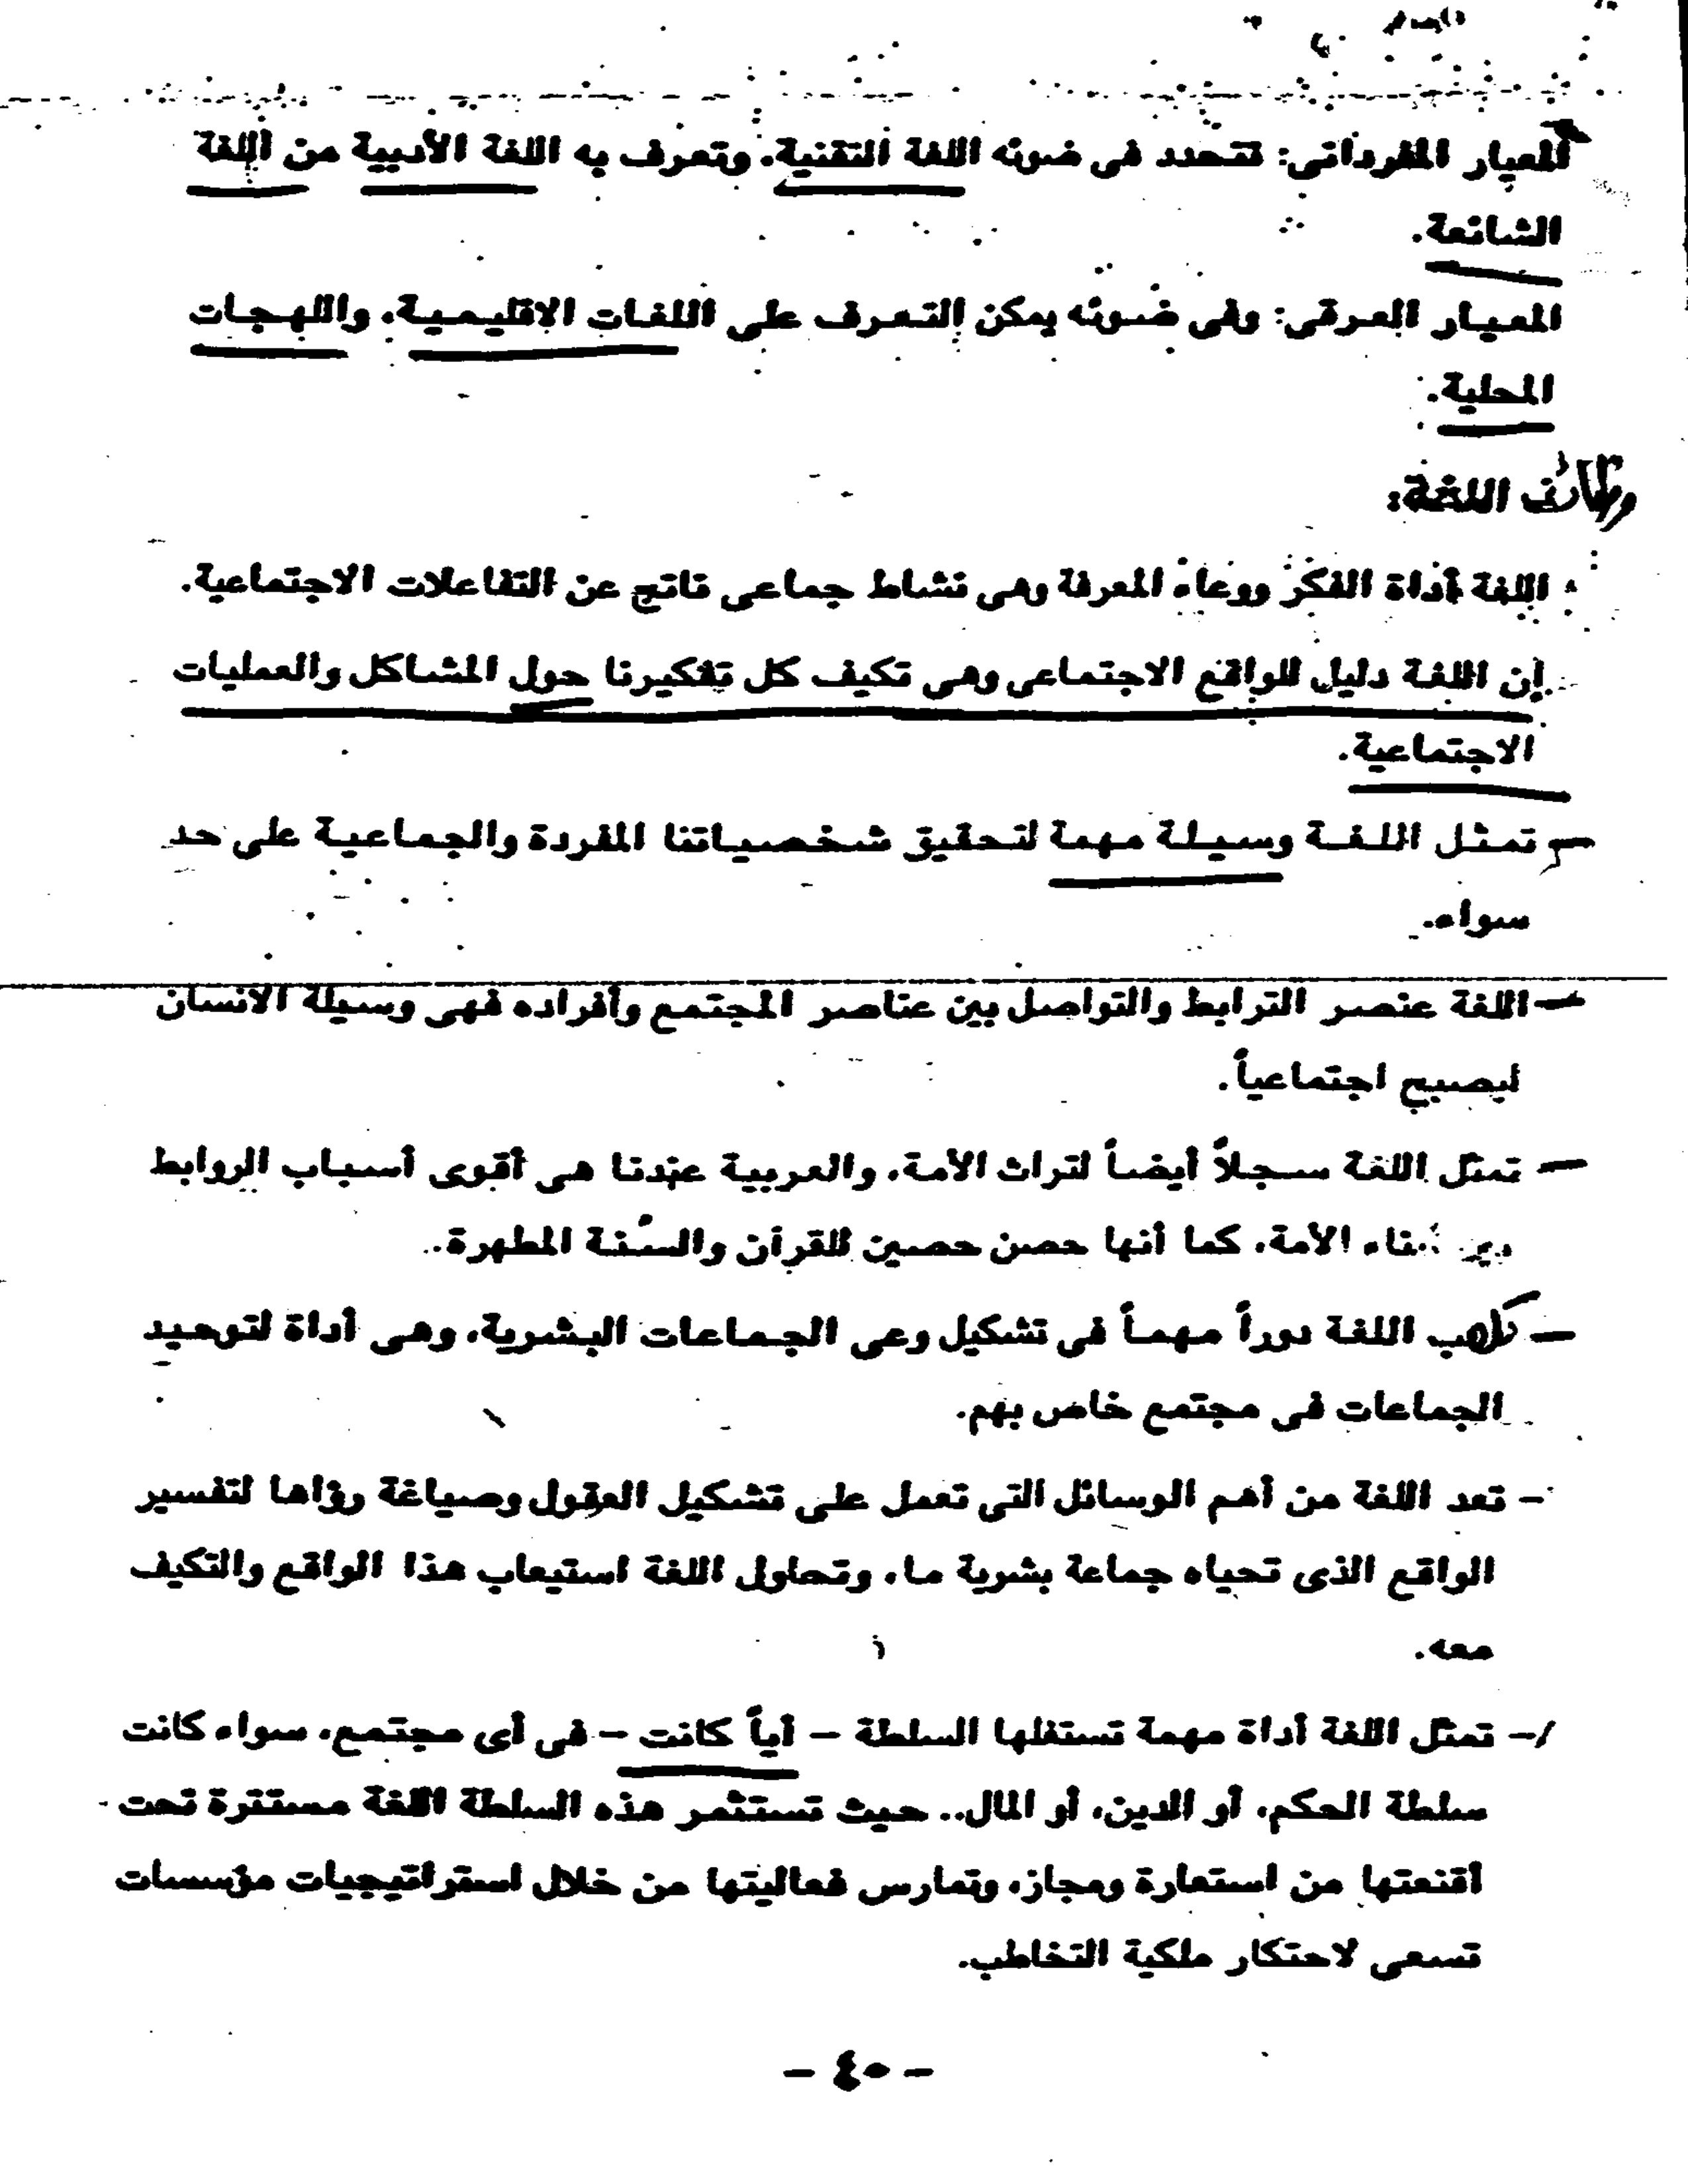 المعيار المفرداتى: تتحدد فى ضوئه اللغة التقنية، وتعرف به اللغة الأدبية من اللغة
الشائعة.
المعيار العرقى: وفى ضوئه يمكن التعرف على اللغات الإقليمية، واللهجات
المحلية.
وظائف اللغة:
اللغة أداة الفكر ووعاء المعرفة وهى نشاط جماعى ناتج عن التفاعلات الاجتماعية.
إن اللغة دليل للواقع الاجتماعى وهى تكيف كل تفكيرنا حول المشاكل والعمليات
الاجتماعية.
تمثل اللغة وسيلة مهمة لتحقيق شخصياتنا المفردة والجماعية على حد
سواء.
- اللغة عنصر الترابط والتواصل بين عناصر المجتمع وأفراده فهى وسيلة الانسان
ليصبح اجتماعياً.
- تمثل اللغة سجلاً أيضاً لتراث الأمة، والعربية عندنا هى أقوى أسباب الروابط
الأمة، كما أنها حصن حصين للقرآن والسنة المطهرة.
- تلعب اللغة دوراً مهماً فى تشكيل وعى الجماعات البشرية، وهى أداة لتوحيد
الجماعات فى مجتمع خاص بهم.
- تعد اللغة من أهم الوسائل التى تعمل على تشكيل العقول وصياغة رؤاها لتفسير
الواقع الذى تحياه جماعة بشرية ما، وتحاول اللغة استيعاب هذا الواقع والتكيف
معه.
- تمثل اللغة أداة مهمة تستغلها السلطة - أياً كانت - فى أى مجتمع، سواء كانت
سلطة الحكم، أو الدين، أو المال.. حيث تستثمر هذه السلطة اللغة مستترة تحت
أقنعتها من استعارة ومجاز، وتمارس فعاليتها من خلال استراتيجيات مؤسسات
تسعى لاحتكار ملكية التخاطب.
- ٤٠ -